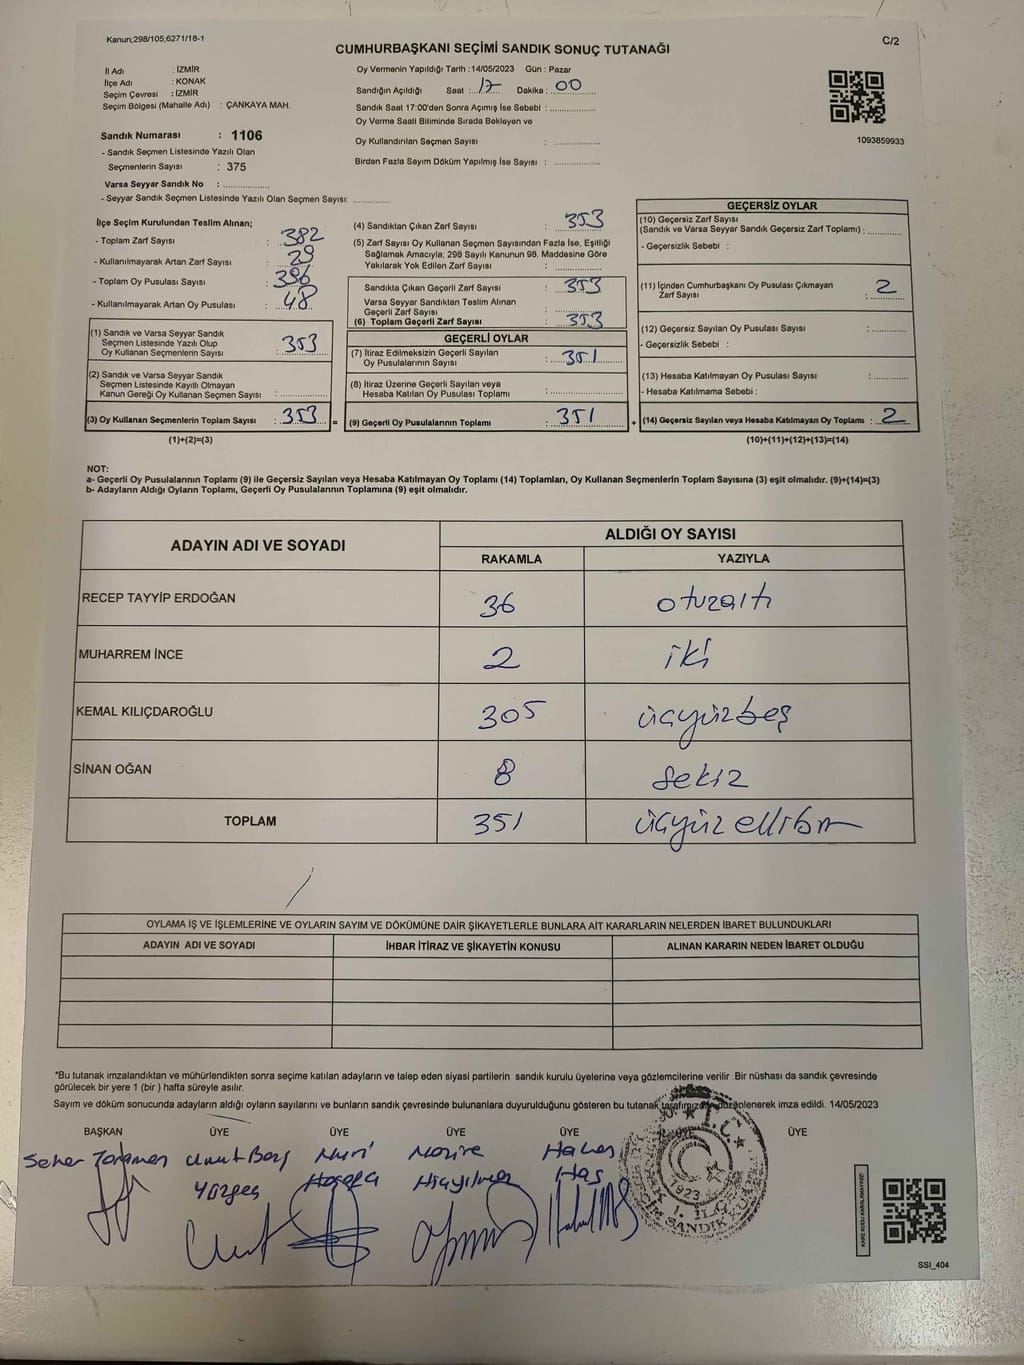 Kanun;298/105;6271/18-1
CUMHURBAŞKANI SEÇİMİ SANDIK SONUÇ TUTANAĞI
C/2
İl Adı : İZMİR
İlçe Adı : KONAK
Seçim Çevresi : İZMİR
Seçim Bölgesi (Mahalle Adı) : ÇANKAYA MAH.
Sandık Numarası : 1106
- Sandık Seçmen Listesinde Yazılı Olan
Seçmenlerin Sayısı : 375
Varsa Seyyar Sandık No : ..................
- Seyyar Sandık Seçmen Listesinde Yazılı Olan Seçmen Sayısı: ............
Oy Vermenin Yapıldığı Tarih :14/05/2023 Gün : Pazar
Sandığın Açıldığı Saat : 17 Dakika : 00
Sandık Saat 17:00'den Sonra Açımış İse Sebebi : ...............
Oy Verme Saati Bitiminde Sırada Bekleyen ve
Oy Kullandırılan Seçmen Sayısı : ...............
Birden Fazla Sayım Döküm Yapılmış İse Sayısı : ...............
1093859933
İlçe Seçim Kurulundan Teslim Alınan;
- Toplam Zarf Sayısı : 382
- Kullanılmayarak Artan Zarf Sayısı : 29
- Toplam Oy Pusulası Sayısı : 396
- Kullanılmayarak Artan Oy Pusulası : 48
(1) Sandık ve Varsa Seyyar Sandık
Seçmen Listesinde Yazılı Olup
Oy Kullanan Seçmenlerin Sayısı : 353
(2) Sandık ve Varsa Seyyar Sandık
Seçmen Listesinde Kayıtlı Olmayan
Kanun Gereği Oy Kullanan Seçmen Sayısı : ...............
(3) Oy Kullanan Seçmenlerin Toplam Sayısı : 353 =
(1)+(2)=(3)
(4) Sandıktan Çıkan Zarf Sayısı : 353
(5) Zarf Sayısı Oy Kullanan Seçmen Sayısından Fazla İse, Eşitliği
Sağlamak Amacıyla; 298 Sayılı Kanunun 98. Maddesine Göre
Yakılarak Yok Edilen Zarf Sayısı : ...............
Sandıkta Çıkan Geçerli Zarf Sayısı : 353
Varsa Seyyar Sandıktan Teslim Alınan
Geçerli Zarf Sayısı : ...............
(6) Toplam Geçerli Zarf Sayısı : 353
GEÇERLİ OYLAR
(7) İtiraz Edilmeksizin Geçerli Sayılan
Oy Pusulalarının Sayısı : 351
(8) İtiraz Üzerine Geçerli Sayılan veya
Hesaba Katılan Oy Pusulası Toplamı : ...............
(9) Geçerli Oy Pusulalarının Toplamı : 351 +
GEÇERSİZ OYLAR
(10) Geçersiz Zarf Sayısı
(Sandık ve Varsa Seyyar Sandık Geçersiz Zarf Toplamı) : .........
- Geçersizlik Sebebi :
(11) İçinden Cumhurbaşkanı Oy Pusulası Çıkmayan
Zarf Sayısı : 2
(12) Geçersiz Sayılan Oy Pusulası Sayısı : .........
- Geçersizlik Sebebi :
(13) Hesaba Katılmayan Oy Pusulası Sayısı : .........
- Hesaba Katılmama Sebebi :
(14) Geçersiz Sayılan veya Hesaba Katılmayan Oy Toplamı : 2
(10)+(11)+(12)+(13)=(14)
NOT:
a- Geçerli Oy Pusulalarının Toplamı (9) ile Geçersiz Sayılan veya Hesaba Katılmayan Oy Toplamı (14) Toplamları, Oy Kullanan Seçmenlerin Toplam Sayısına (3) eşit olmalıdır. (9)+(14)=(3)
b- Adayların Aldığı Oyların Toplamı, Geçerli Oy Pusulalarının Toplamına (9) eşit olmalıdır.
ADAYIN ADI VE SOYADI
ALDIĞI OY SAYISI
RAKAMLA YAZIYLA
RECEP TAYYİP ERDOĞAN 36 otuzaltı
MUHARREM İNCE 2 iki
KEMAL KILIÇDAROĞLU 305 üçyüzbeş
SİNAN OĞAN 8 sekiz
TOPLAM 351 üçyüz ellibir
OYLAMA İŞ VE İŞLEMLERİNE VE OYLARIN SAYIM VE DÖKÜMÜNE DAİR ŞİKAYETLERLE BUNLARA AİT KARARLARIN NELERDEN İBARET BULUNDUKLARI
ADAYIN ADI VE SOYADI İHBAR İTİRAZ VE ŞİKAYETİN KONUSU ALINAN KARARIN NEDEN İBARET OLDUĞU
*Bu tutanak imzalandıktan ve mühürlendikten sonra seçime katılan adayların ve talep eden siyasi partilerin sandık kurulu üyelerine veya gözlemcilerine verilir .Bir nüshası da sandık çevresinde
görülecek bir yere 1 (bir ) hafta süreyle asılır.
Sayım ve döküm sonucunda adayların aldığı oyların sayılarını ve bunların sandık çevresinde bulunanlara duyurulduğunu gösteren bu tutanak tarafımızca düzenlenerek imza edildi. 14/05/2023
BAŞKAN ÜYE ÜYE ÜYE ÜYE ÜYE ÜYE
Seher Umut Nuri Hakan
Has
T.C.
1923
KARE KODU KARALAMAYINIZ!
SSI_404